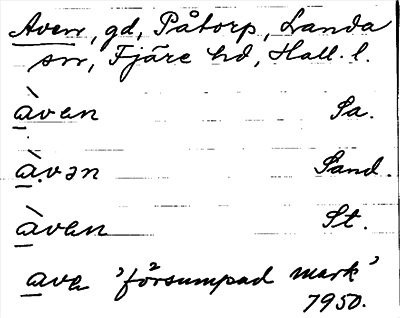 Aven, gd, Påtorp, Landa
sn, Fjäre hd, Hall. l.
àvan Sa.
à.vən Sand.
àvan St.
ava 'försumpad mark'
1950.